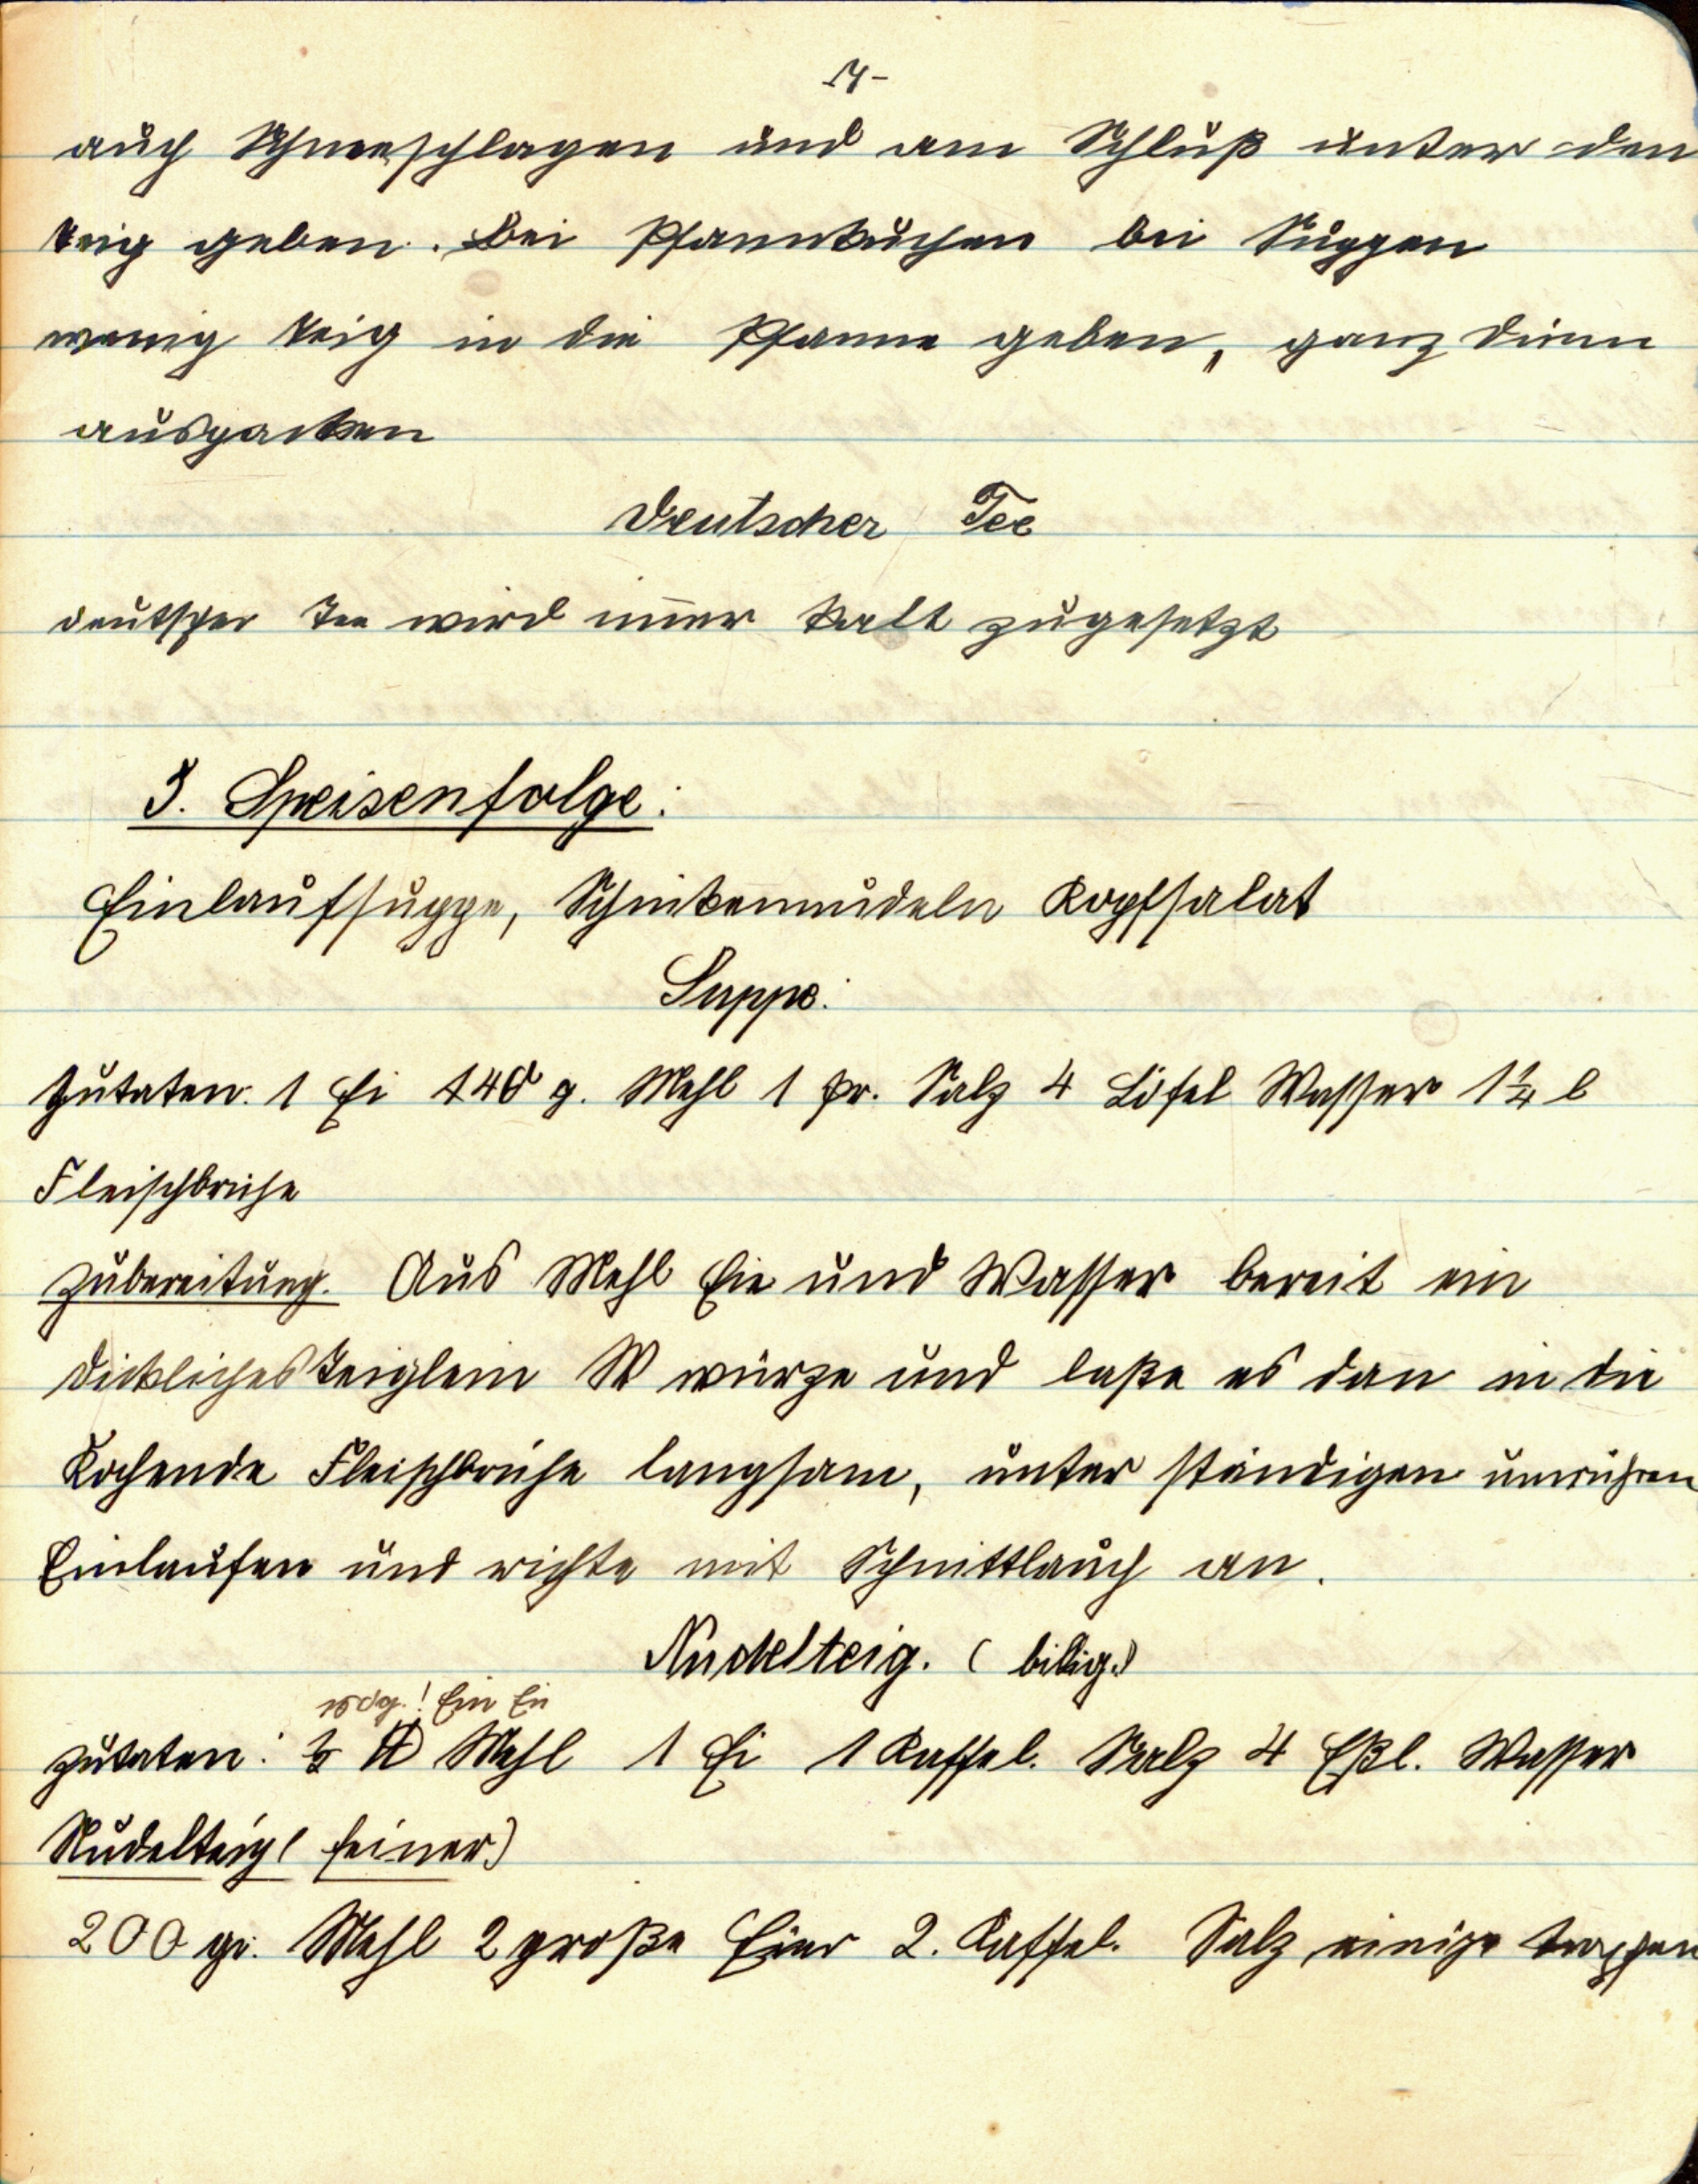 auch Schneeschlagen und am Schluß unter den
Teig geben. Bei Pfannkuchen bei Suppen
wenig Teig in die Pfanne geben, ganz dünn
ausbacken
Deutscher Tee
deutscher Tee wird im̅er kalt zugesetzt
3. Speisenfolge:
Einlaufsuppe, Schinkennudeln Kopfsalat
Suppe:
Zutaten: 1 Ei 140 g. Mehl 1 Pr. Salz 4 Löfel Wasser 1¼ l
Fleischbrühe
Zubereitung. Aus Mehl Eie und Wasser bereit ein
dickliches Teiglein W würze und laße es dan in die
Kochende Fleischbrühe langsam, unter ständigen umrühren
Einlaufen und richte mit Schnittlauch an.
Nudelteig. (billig.)
Ein Ei
Zutaten: ½ ℔ Mehl 1 Ei 1 Kaffel. Salz 4 Eßl. Wasser
Nudelteig (feiner)
200 gr. Mehl 2 große Eier 2. Kaffel. Salz einige tropfen